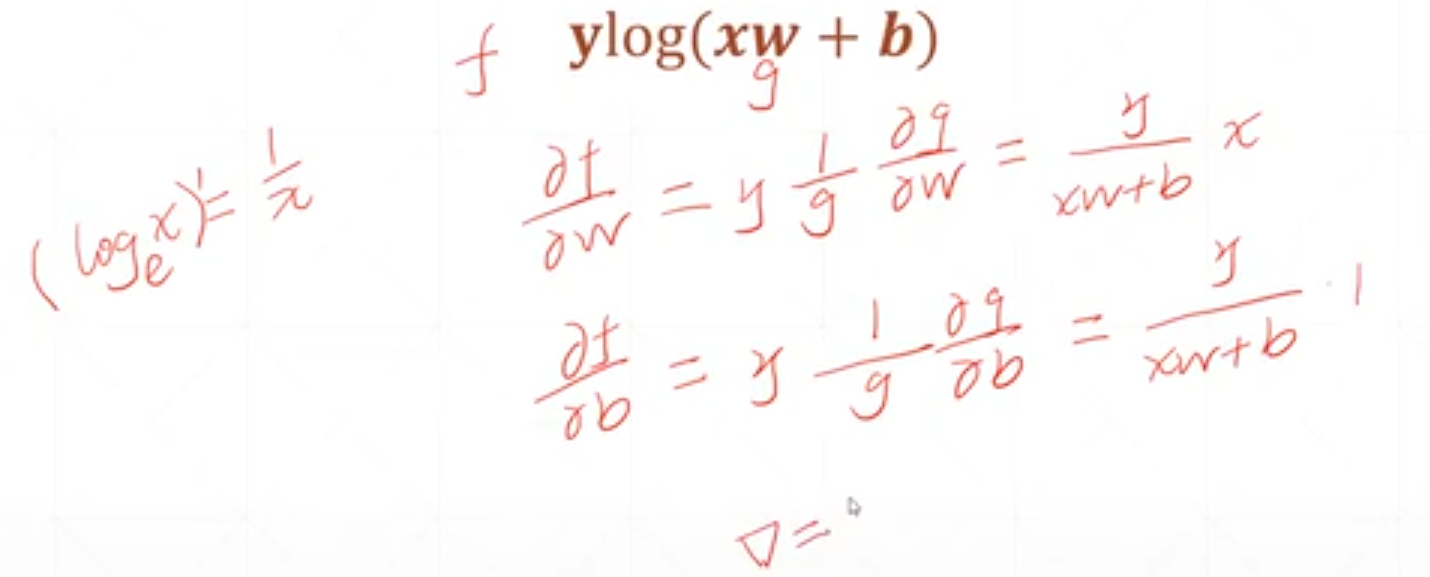 f ylog(xw + b)
g
(logₑx)' = 1/x
∂f/∂w = y 1/g ∂g/∂w = y/(xw+b) x
∂f/∂b = y 1/g ∂g/∂b = y/(xw+b) · 1
∇ =